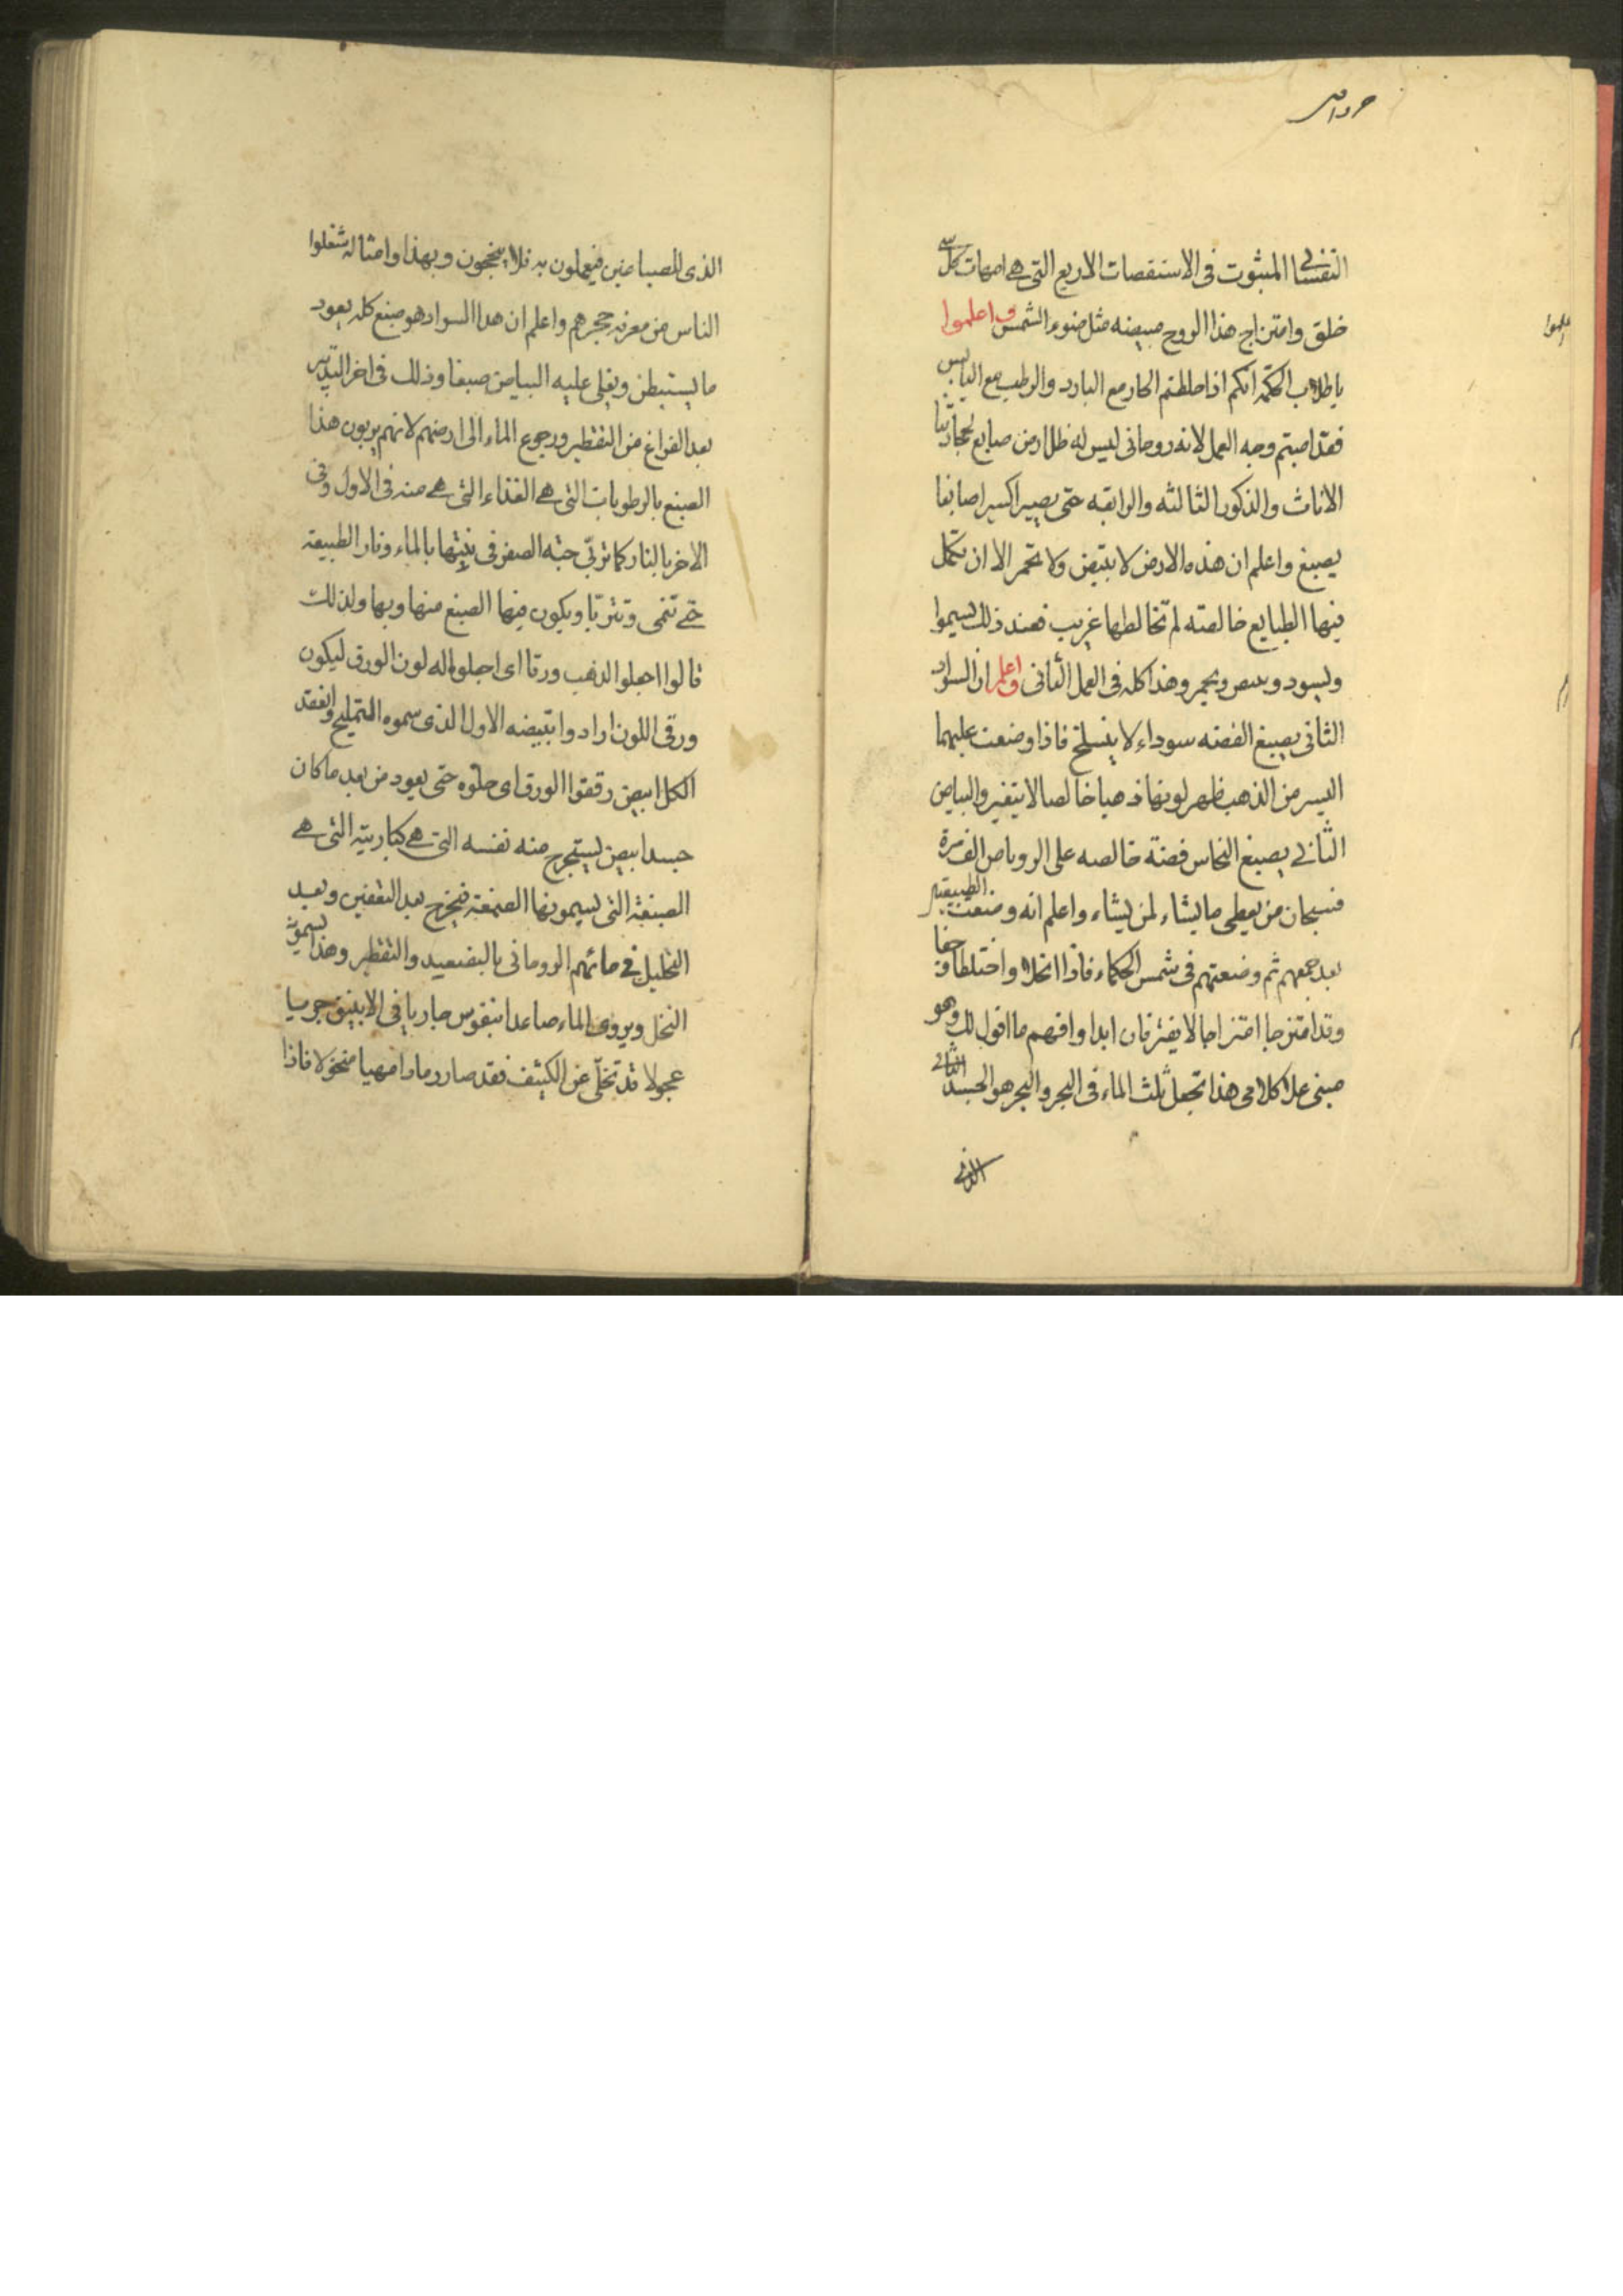 النفسا المبثوت فى الاستقصات الاربع التى هى امهات كل
خلق وامتزاج هذا الروح مبيضه مثل ضوء الشمس واعلموا
ياطلاب الحكمه انكم اذا خلطتم الحار مع البارد والرطب مع اليابس
فقد اصبتم وجه العمل لانه روحانى ليس له ظلا
الاناث والذكور الثالثه والرابعه حتى يصير اكسيرا صابغا
يصبغ واعلم ان هذه الارض لا تبيض ولا تحمر الا ان تكمل
فيها الطبايع خالصته لم تخالطها غريب فعند ذلك يسموا
ويسود ويبيض ويحمر وهذا كله فى العمل الثانى واعلم ان السواد
الثانى يصبغ الفضه سوداء لا ينسلخ فاذا وضعت عليهما
اليسر من الذهب ظهر لونها ذهبا خالصا لا يتغير والبياض
الثانى يصبغ النحاس فضة خالصه على الروباص
فسبحان من يعطى ما يشاء لمن يشاء واعلم انه وضعت الطبيعتين
بعد جمعهم ثم وضعتهم فى شمس الحكماء فاذا انحلا واختلطا
وقد امتزجا امتزاجا لا يفترقان ابدا وافهم ما اقول لك وهو
مبنى على كلامى هذا تجعل ثلث الماء فى البحر والبحر هو الجسد الثانى
الذى
الذى للصباغين فيعملون به فلا ينجحون وبهذا وامثاله شغلوا
الناس من معرفة حجرهم واعلم ان هذا السواد هو صبغ كله يعود
ما يستبطن ويغلى عليه البياض صبغا وذلك فى اخر التدبير
بعد الفراغ من التقطير ورجوع الماء الى ارضهم لانهم يربون هذا
الصبغ بالرطوبات التى هى الغذاء التى هى منه فى الاول وفى
الاخر بالنار كما تربى حبة الصفر فى نبتها بالماء ونار الطبيعة
حتى تنمى وتتربا ويكون فيها الصبغ منها وبها ولذلك
قالوا اجعلوا الذهب ورقا اى اجعلوا له لون الورق ليكون
ورقى اللون ارادوا تبيضه الاول الذى سموه التمليح وانعقد
الكل ابيض رققوا الورق اى حلوه حتى يعود من بعد ما كان
جسدا ابيض ليستخرج منه نفسه التى هى كباريته التى هى
الصبغة التى يسمونها الصمغة فتخرج بعد التعفين وبعد
التحليل فى مائهم الروحانى بالتصعيد والتقطير وهذا يسموه
النخل ويروى الماء صاعدا بنفوس جاريا فى الانبيق جريا
عجولا قد تخلى عن الكثيف فقد صار رمادا مهيا منخولا فاذا